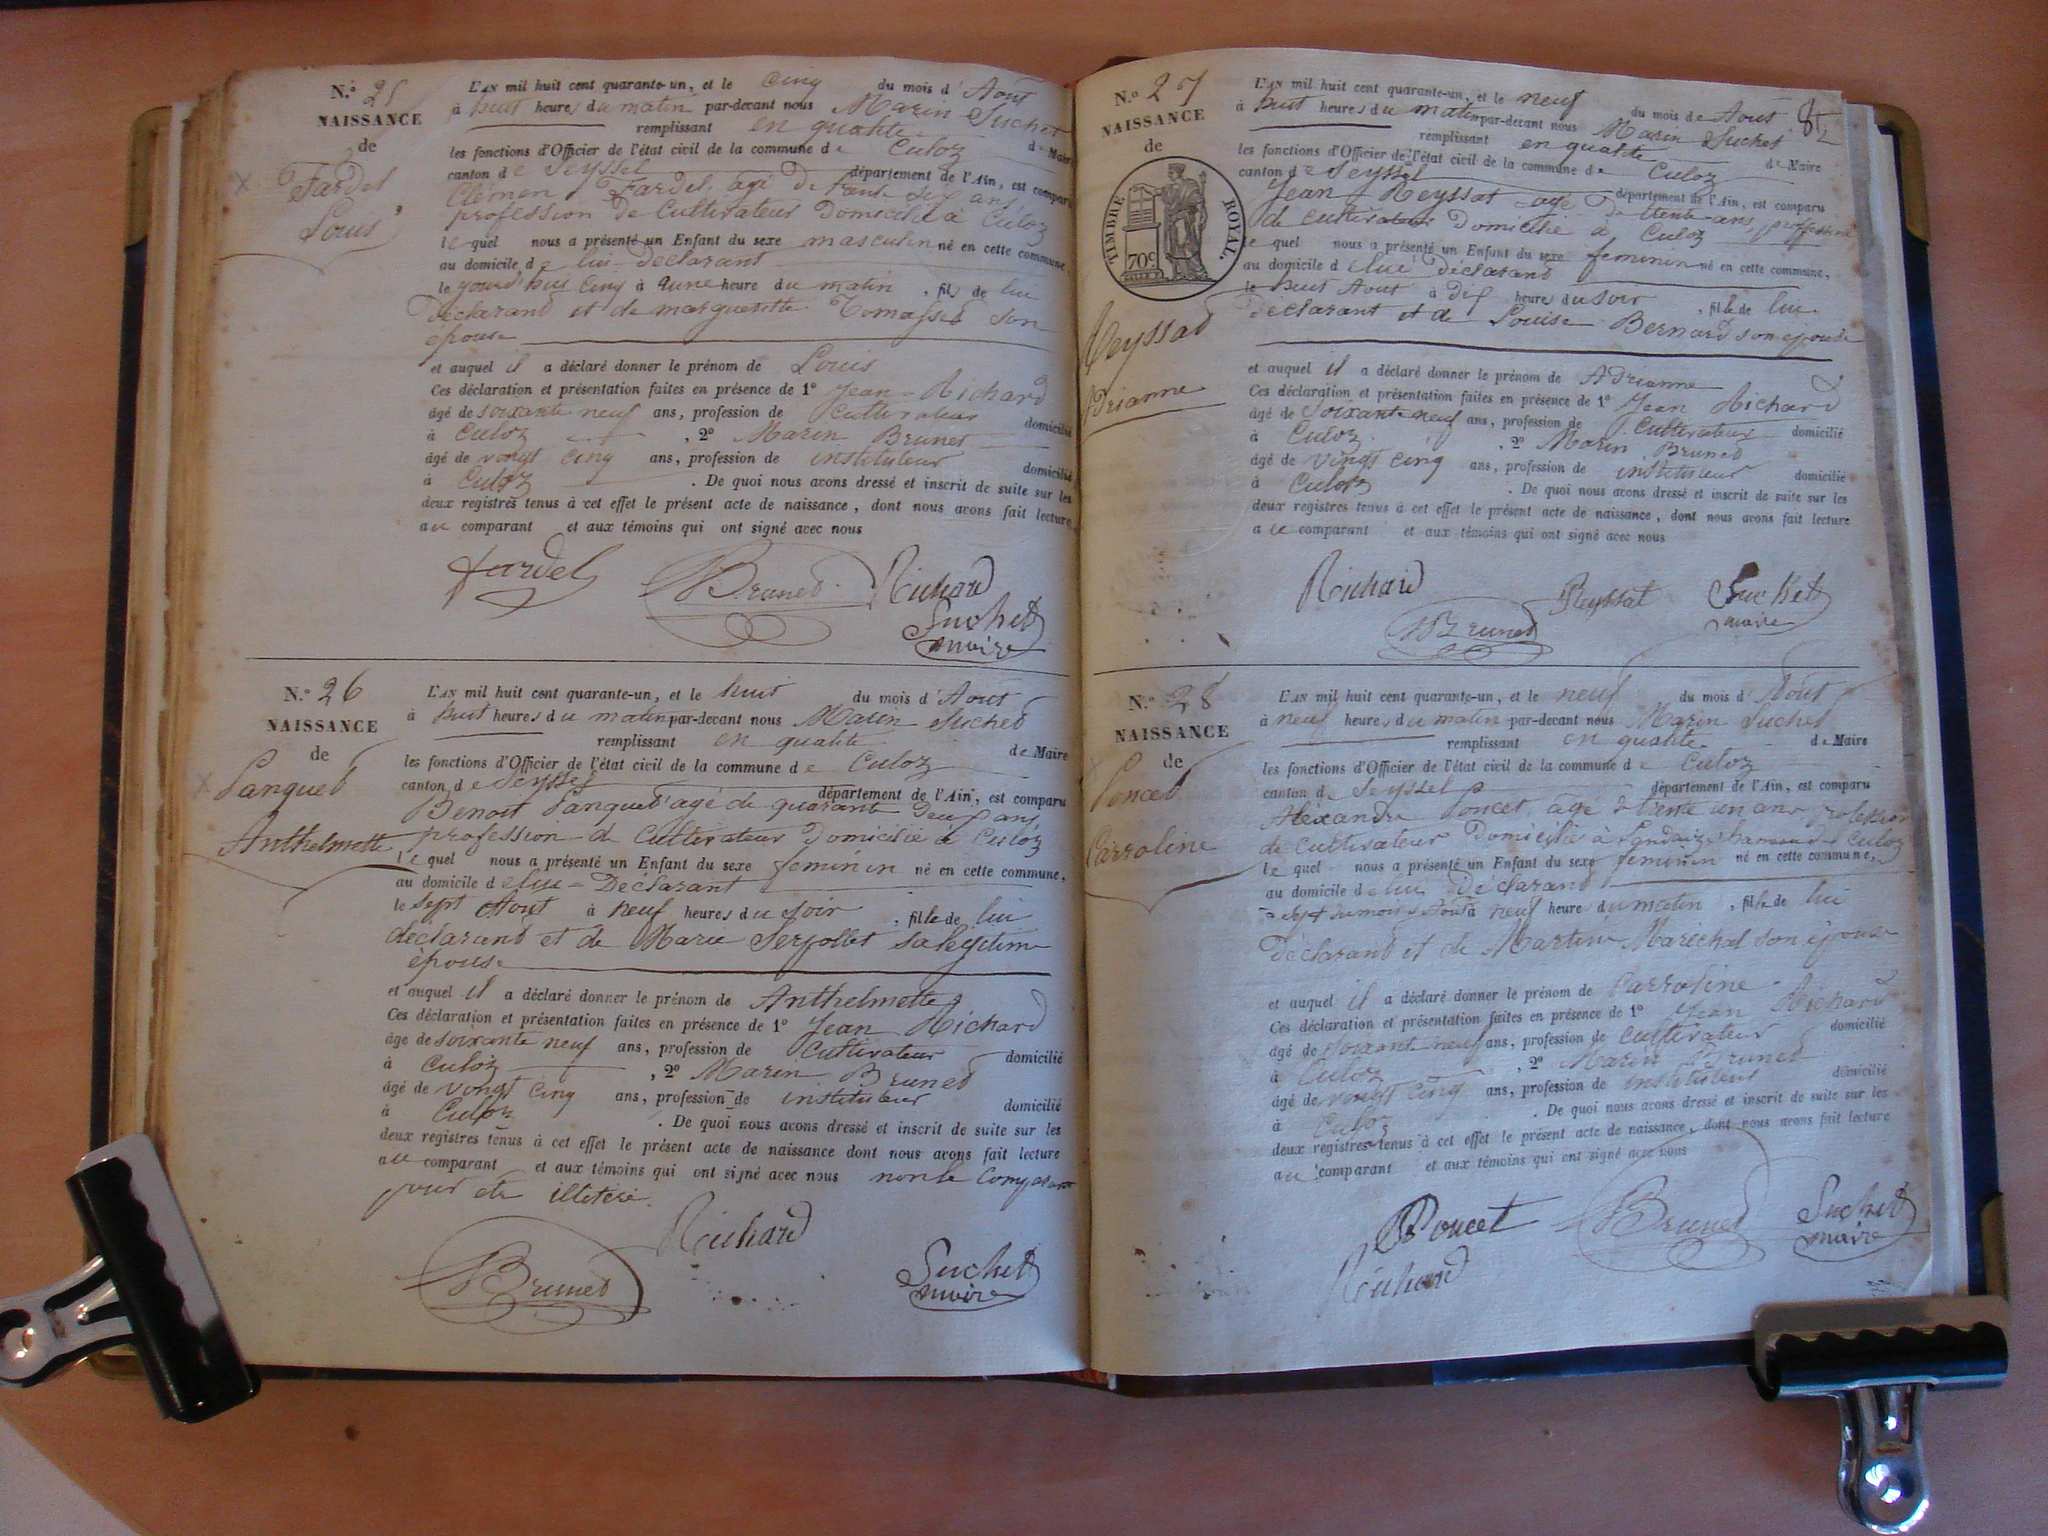 N.° 25
NAISSANCE
de
Fardel
Louis
L'AN mil huit cent quarante-un, et le cinq du mois d' Aout
à huit heures du matin par-devant nous Marin Suchet
remplissant en qualité de Maire
les fonctions d'Officier de l'état civil de la commune de Culoz
canton de Seyssel département de l'Ain, est comparu
Clément Fardel, agé de trente six ans
profession de Cultivateur Domicilié à Culoz
lequel nous a présenté un Enfant du sexe masculin né en cette commune
au domicile de lui Déclarant
le jourd'hui cinq à une heure du matin, fils de lui
Déclarant et de margueritte Tomasset son
épouse
et auquel il a déclaré donner le prénom de Louis
Ces déclaration et présentation faites en présence de 1° Jean Richard
âgé de soixante neuf ans, profession de Cultivateur domicilié
à Culoz, 2° Marin Brunet
âgé de vingt cinq ans, profession de instituteur domicilié
à Culoz. De quoi nous avons dressé et inscrit de suite sur les
deux registres tenus à cet effet le présent acte de naissance, dont nous avons fait lecture
au comparant et aux témoins qui ont signé avec nous
Fardel Brunet Richard
Suchet
maire
N.° 26
NAISSANCE
de
Panguet
Anthelmette
L'AN mil huit cent quarante-un, et le huit du mois d' Aout
à huit heures du matin par-devant nous Marin Suchet
remplissant en qualité de Maire
les fonctions d'Officier de l'état civil de la commune de Culoz
canton de Seyssel département de l'Ain, est comparu
Benoit Panguet agé de quarante Deux ans
profession de Cultivateur Domicilié à Culoz
lequel nous a présenté un Enfant du sexe feminin né en cette commune,
au domicile de lui Déclarant
le sept Aout à neuf heures du soir, fille de lui
déclarant et de Marie Serpollet sa légitime
épouse
et auquel il a déclaré donner le prénom de Anthelmette
Ces déclaration et présentation faites en présence de 1° Jean Richard
âgé de soixante neuf ans, profession de Cultivateur domicilié
à Culoz, 2° Marin Brunet
âgé de vingt cinq ans, profession de instituteur domicilié
à Culoz. De quoi nous avons dressé et inscrit de suite sur les
deux registres tenus à cet effet le présent acte de naissance dont nous avons fait lecture
au comparant et aux témoins qui ont signé avec nous non le Comparant
pour etre illétéré.
Richard
Brunet Suchet
maire
N.° 27
NAISSANCE
de
TIMBRE ROYAL
70c
Reyssat
Adrianne
82
L'AN mil huit cent quarante-un, et le neuf du mois de Aout
à huit heures du matin par-devant nous Marin Suchet
remplissant en qualité de Maire
les fonctions d'Officier de l'état civil de la commune de Culoz
canton de Seyssel département de l'Ain, est comparu
Jean Reyssat agé De trente ans, profession
de cultivateur Domicilié à Culoz
lequel nous a présenté un Enfant du sexe feminin né en cette commune,
au domicile de lui déclarant
le huit Aout à dix heure du soir, fille de lui
Déclarant et de Louise Bernard son épouse
et auquel il a déclaré donner le prénom de Adrianne
Ces déclaration et présentation faites en présence de 1° Jean Richard
âgé de soixante neuf ans, profession de Cultivateur domicilié
à Culoz. 2° Marin Brunet
âgé de vingt cinq ans, profession de instituteur domicilié
à Culoz. De quoi nous avons dressé et inscrit de suite sur les
deux registres tenus à cet effet le présent acte de naissance, dont nous avons fait lecture
au comparant et aux témoins qui ont signé avec nous
Richard Reyssat Suchet
Brunet maire
N.° 28
NAISSANCE
de
Poncet
Carroline
L'AN mil huit cent quarante-un, et le neuf du mois d' Aout
à neuf heures du matin par-devant nous Marin Suchet
remplissant en qualité de Maire
les fonctions d'Officier de l'état civil de la commune de Culoz
canton de Seyssel département de l'Ain, est comparu
Aléxandre Poncet agé de trente un ans profession
de Cultivateur Domicilié à Landaize hameau de Culoz
lequel nous a présenté un Enfant du sexe feminin né en cette commune,
au domicile de lui déclarant
sept du mois d'Aout à neuf heure du matin, fille de lui
Déclarant et de Martine Maréchal son épouse
et auquel il a déclaré donner le prénom de Carroline
Ces déclaration et présentation faites en présence de 1° Jean Richard
âgé de soixante neuf ans, profession de Cultivateur domicilié
à Culoz, 2° Marin Brunet
âgé de vingt cinq ans, profession de instituteur domicilié
à Culoz. De quoi nous avons dressé et inscrit de suite sur les
deux registres tenus à cet effet le présent acte de naissance, dont nous avons fait lecture
au comparant et aux témoins qui ont signé avec nous
Poncet Brunet Suchet
Richard maire